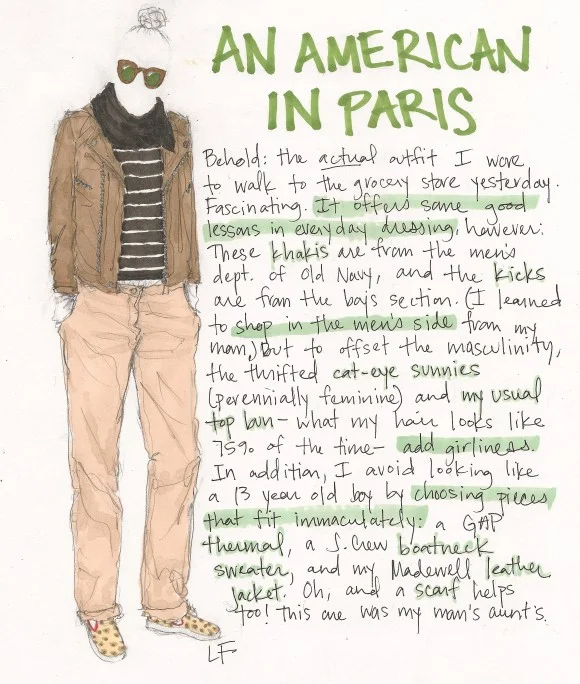 AN AMERICAN
IN PARIS
Behold: the actual outfit I wore
to walk to the grocery store yesterday.
Fascinating. It offers some good
lessons in everyday dressing, however:
These khakis are from the men's
dept. of Old Navy, and the kicks
are from the boy's section. (I learned
to shop in the men's side from my
mom,) but to offset the masculinity,
the thrifted cat-eye sunnies
(perennially feminine) and my usual
top bun - what my hair looks like
75% of the time - add girliness.
In addition, I avoid looking like
a 13 year old boy by choosing pieces
that fit immaculately: a GAP
thermal, a J. Crew boatneck
sweater, and my Madewell leather
jacket. Oh, and a scarf helps
too! This one was my man's aunt's.
LF